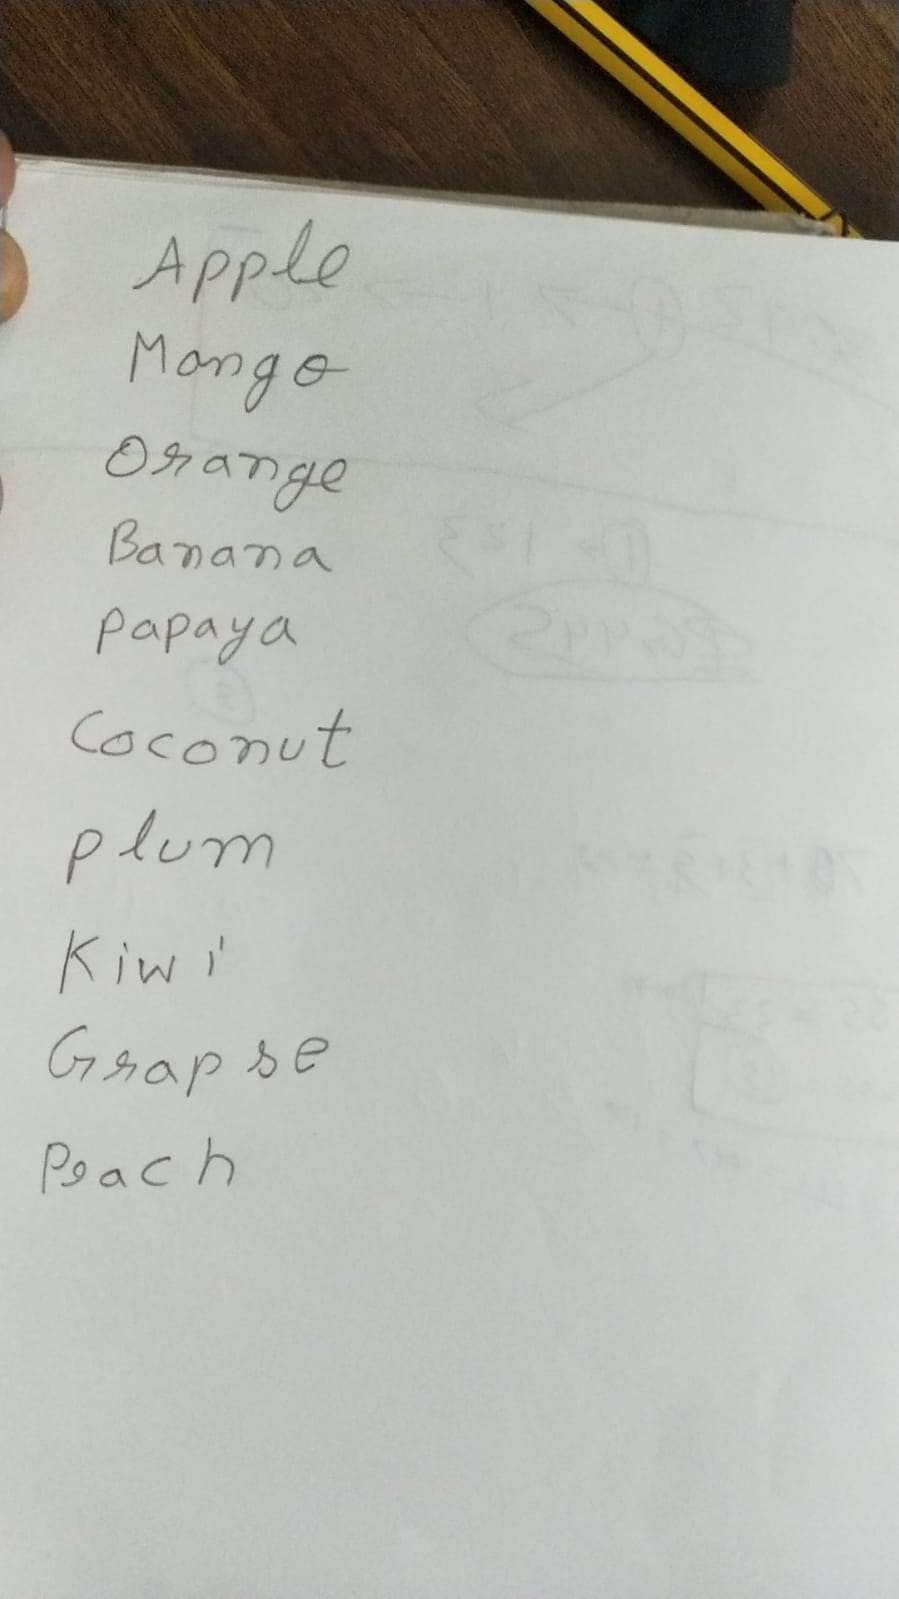 Apple
Mango
Orange
Banana
Papaya
Coconut
Plum
Kiwi
Grapse
Peach